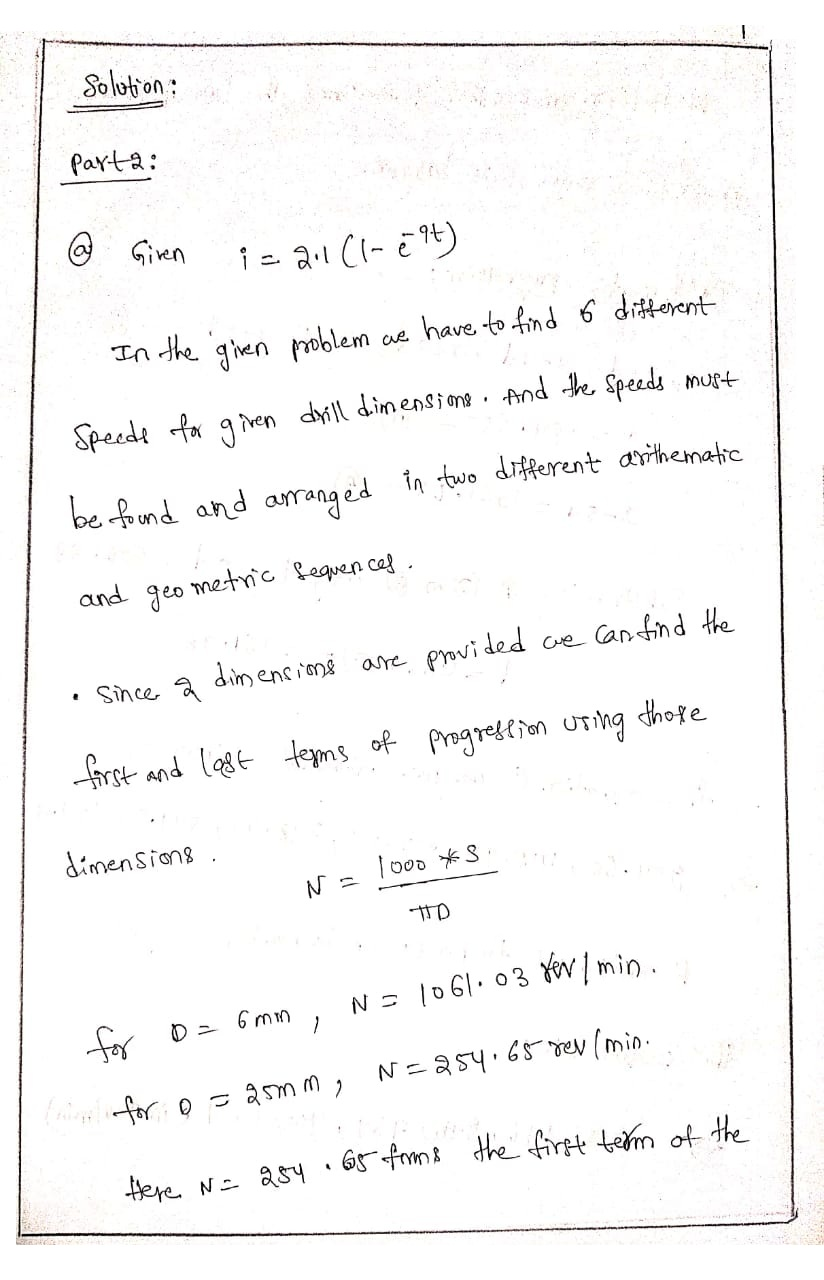 1
Solution:
Part2:
ⓐ Given i = 2.1 (1- e^-9t)
In the given problem we have to find 6 different
Speeds for given drill dimensions. And the Speeds must
be found and arranged in two different arithematic
and geometric Sequences.
• Since 2 dimensions are provided we Can find the
first and last terms of progression using those
dimensions.
N = 1000 * S
πD
for D = 6mm, N = 1061.03 rev/min.
for D = 25mm, N = 254.65 rev/min.
Here N = 254.65 forms the first term of the